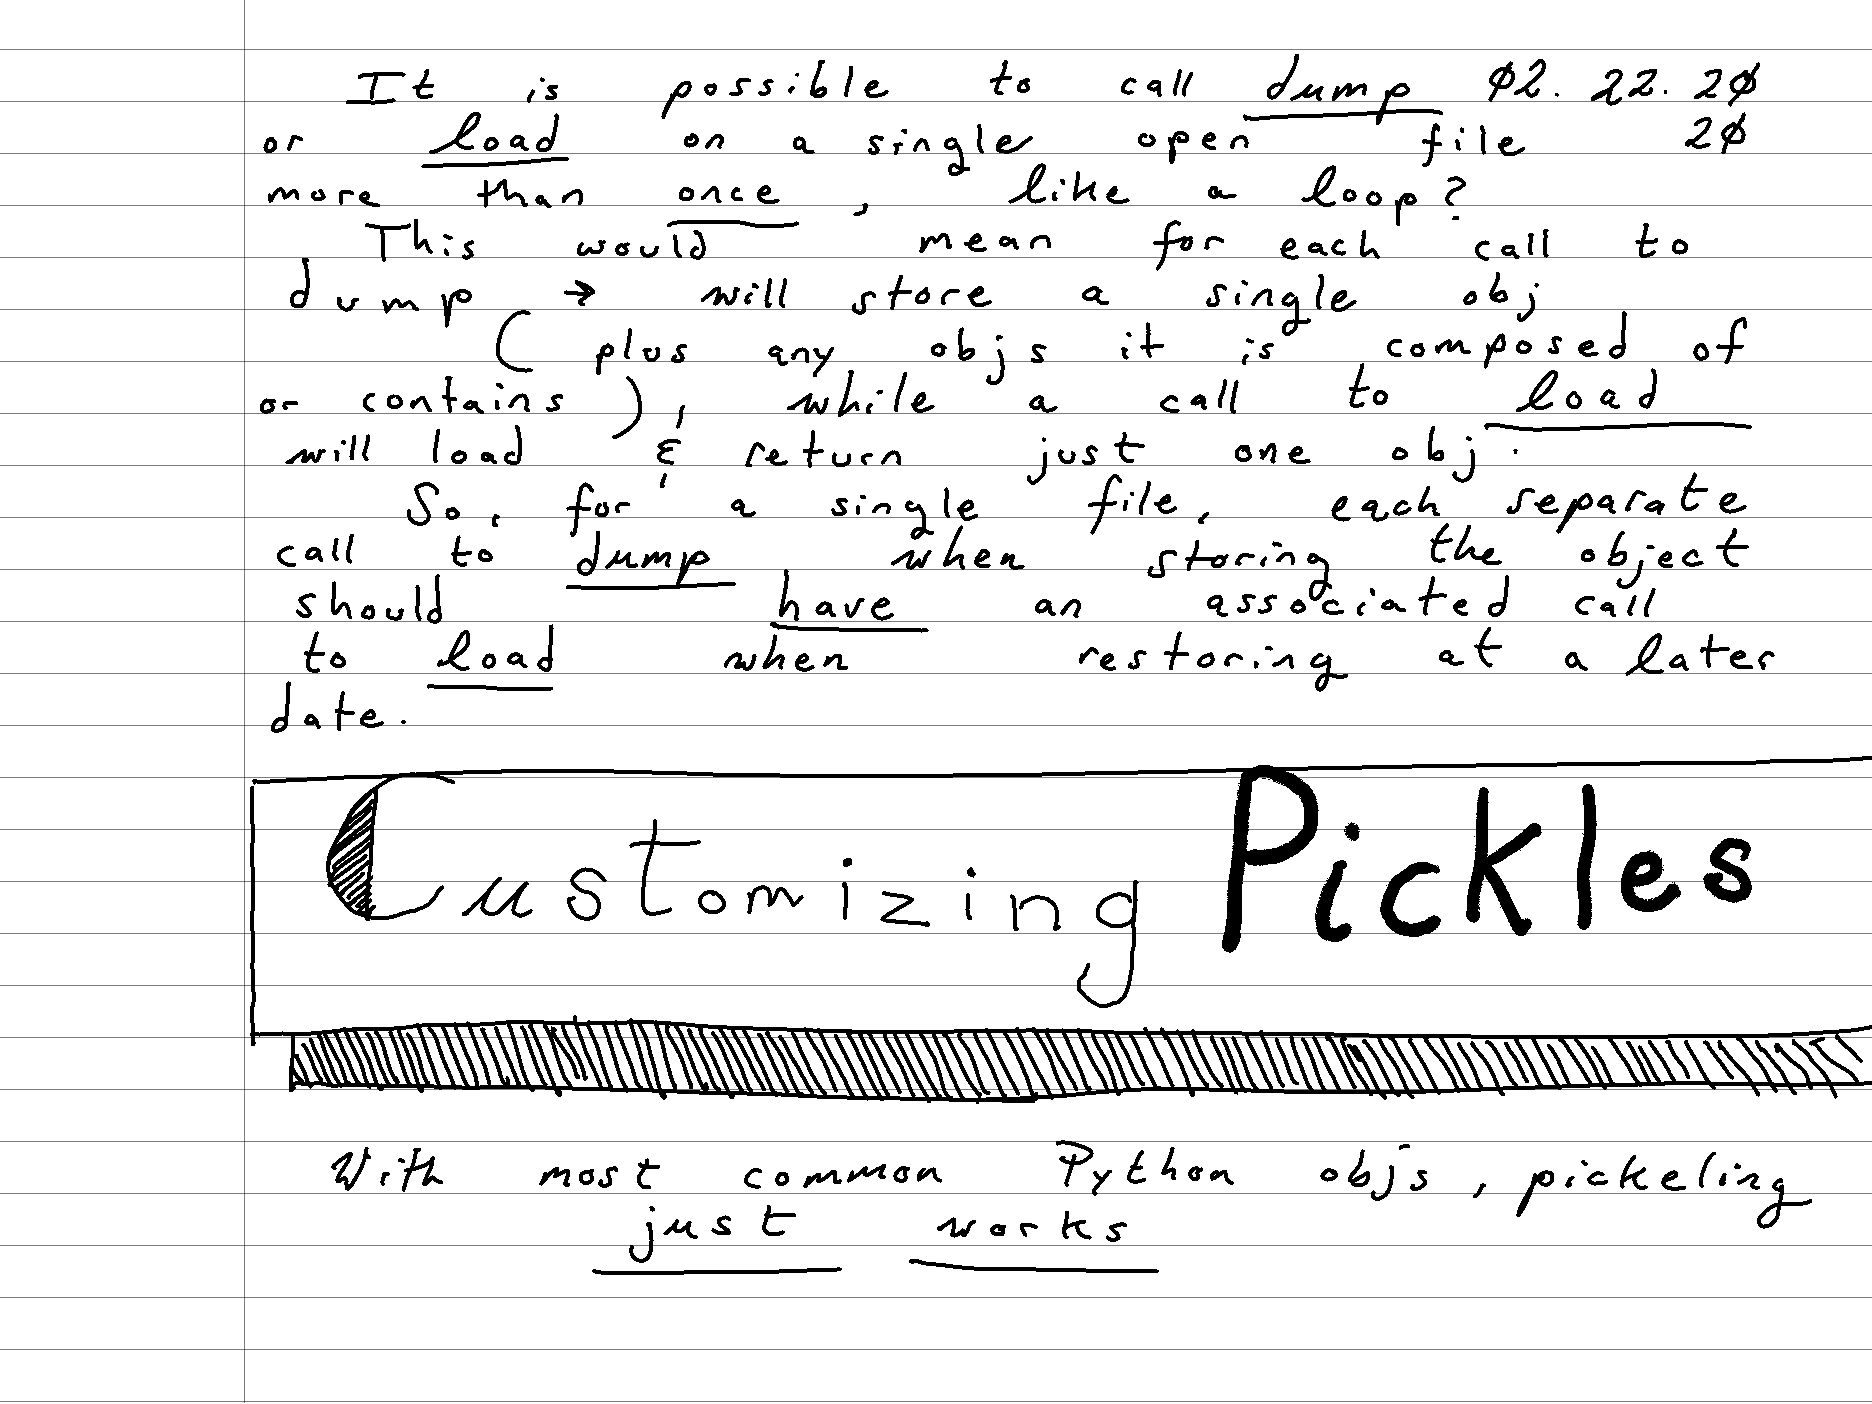 It is possible to call dump 02. 22. 20
or load on a single open file 20
more than once, like a loop?
This would mean for each call to
dump → will store a single obj
( plus any objs it is composed of
or contains ), while a call to load
will load & return just one obj.
So, for a single file, each separate
call to dump when storing the object
should have an associated call
to load when restoring at a later
date.
Customizing Pickles
With most common Python objs, pickeling
just works